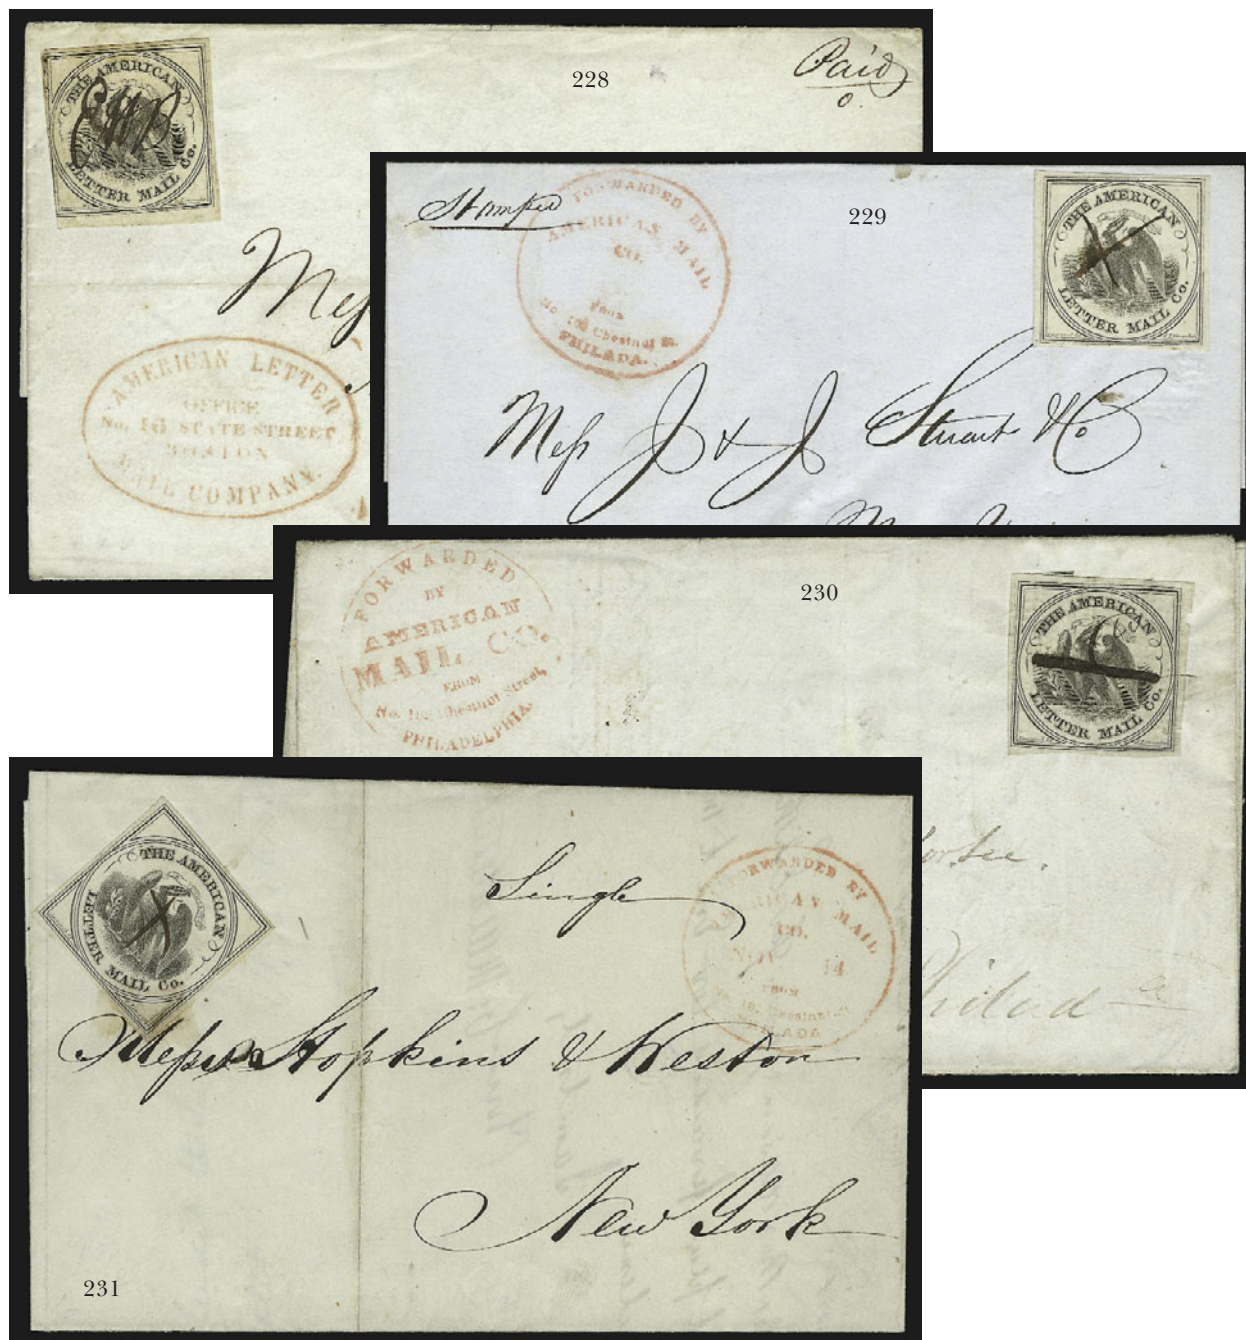 THE AMERICAN
LETTER MAIL Co.
228
Paid
Mess
AMERICAN LETTER
OFFICE
No. 16 STATE STREET
BOSTON
MAIL COMPANY.
Stamped
FORWARDED BY
AMERICAN MAIL
CO.
FROM
No. 109 Chestnut St.
PHILADA.
229
THE AMERICAN
LETTER MAIL Co.
Mess J & J Stuart & Co
FORWARDED
BY
AMERICAN
MAIL CO.
FROM
No. Chestnut Street,
PHILADELPHIA.
230
THE AMERICAN
LETTER MAIL Co.
THE AMERICAN
LETTER MAIL Co.
Single
FORWARDED BY
AMERICAN MAIL
CO.
14
FROM
PHILADA
Messrs Hopkins & Weston
New York
231